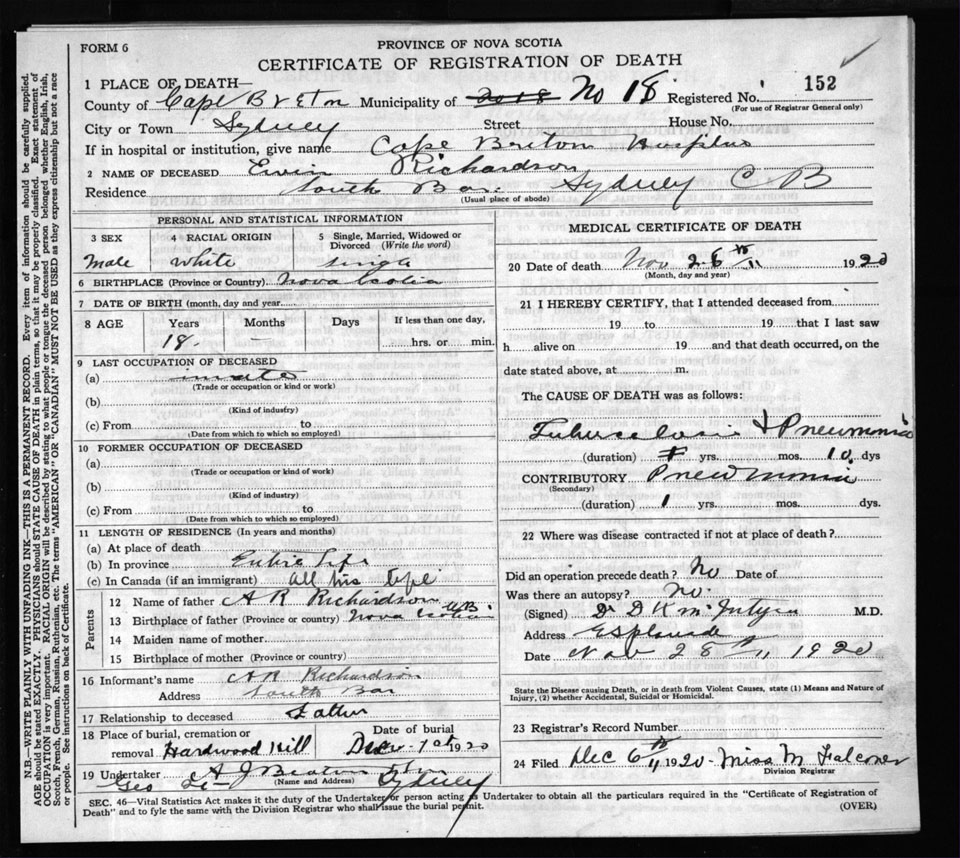 FORM 6
PROVINCE OF NOVA SCOTIA
CERTIFICATE OF REGISTRATION OF DEATH
1 PLACE OF DEATH—
152
County of Cape Breton Municipality of No 18 Registered No.
(For use of Registrar General only)
City or Town Sydney Street House No.
If in hospital or institution, give name Cape Briton Hospital
2 NAME OF DECEASED Richardson
Residence South Bar. Sydney C B
(Usual place of abode)
PERSONAL AND STATISTICAL INFORMATION
3 SEX 4 RACIAL ORIGIN 5 Single, Married, Widowed or Divorced (Write the word)
Male white single
6 BIRTHPLACE (Province or Country) Nova Scotia
7 DATE OF BIRTH (month, day and year
8 AGE Years Months Days If less than one day,
18 hrs. or min.
9 LAST OCCUPATION OF DECEASED
(a)
(Trade or occupation or kind or work)
(b)
(Kind of industry)
(c) From to
(Date from which to which so employed)
10 FORMER OCCUPATION OF DECEASED
(a)
(Trade or occupation or kind of work)
(b)
(Kind of Industry)
(c) From to
(Date from which to which so employed)
11 LENGTH OF RESIDENCE (In years and months)
(a) At place of death
(b) In province Entire life
(c) In Canada (if an immigrant) All his life
Parents
12 Name of father A R Richardson
13 Birthplace of father (Province or country) Nova Scotia
14 Maiden name of mother
15 Birthplace of mother (Province or country)
16 Informant's name A R Richardson
Address South Bar
17 Relationship to deceased Father
18 Place of burial, cremation or Date of burial
removal Hardwood Hill Dec 1st 1920
19 Undertaker A J Beaton
(Name and Address)
Geo Sydney
MEDICAL CERTIFICATE OF DEATH
20 Date of death Nov 26th 11 1920
(Month, day and year)
21 I HEREBY CERTIFY, that I attended deceased from
19 to 19 that I last saw
h alive on 19 and that death occurred, on the
date stated above, at m.
The CAUSE OF DEATH was as follows:
Tuberculosis & Pneumonia
(duration) yrs. mos. 10 dys
CONTRIBUTORY Pneumonia
(Secondary)
(duration) 1 yrs. mos. dys.
22 Where was disease contracted if not at place of death?
Did an operation precede death? No Date of
Was there an autopsy? No.
(Signed) Dr D K McIntyre M.D.
Address Esplanade
Date Nov 28th 11 1920
State the Disease causing Death, or in death from Violent Causes, state (1) Means and Nature of
Injury, (2) whether Accidental, Suicidal or Homicidal.
23 Registrar's Record Number
24 Filed Dec 6th 11 1920 Miss M Falconer
Division Registrar
SEC. 46—Vital Statistics Act makes it the duty of the Undertaker or person acting as Undertaker to obtain all the particulars required in the "Certificate of Registration of
Death" and to fyle the same with the Division Registrar who shall issue the burial permit.
(OVER)
N.B.—WRITE PLAINLY WITH UNFADING INK—THIS IS A PERMANENT RECORD. Every item of information should be carefully supplied.
AGE should be stated EXACTLY. PHYSICIANS should STATE CAUSE OF DEATH in plain terms, so that it may be properly classified. Exact statement of
OCCUPATION is very important. RACIAL ORIGIN will be described by stating to what people or tongue the deceased person belonged whether English, Irish,
Scotch, French, German, Russian, Ruthenian, etc. The terms "AMERICAN" OR "CANADIAN" MUST NOT BE USED as they express citizenship but not a race
or people. See instructions on back of Certificate.